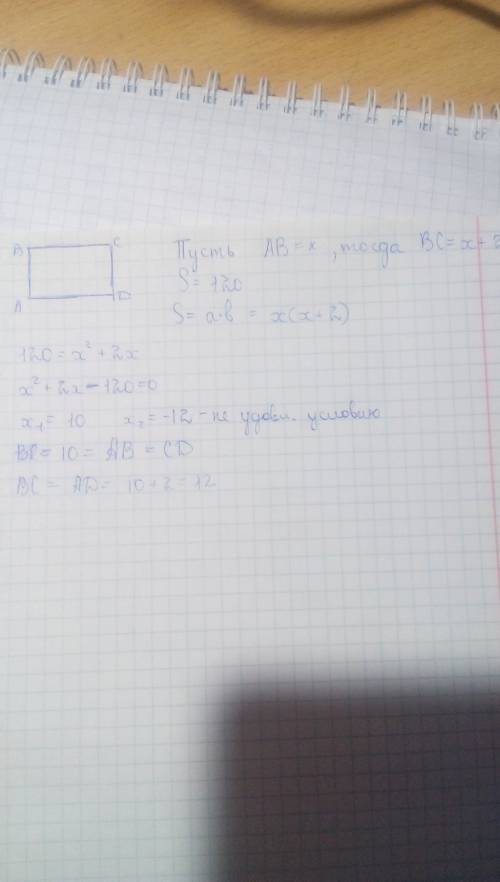 B C
A D
Пусть AB = x, тогда BC = x + 2
S = 120
S = a·b = x(x + 2)
120 = x² + 2x
x² + 2x - 120 = 0
x₁ = 10 x₂ = -12 - не удовл. условию
= 10 = AB = CD
BC = AD = 10 + 2 = 12